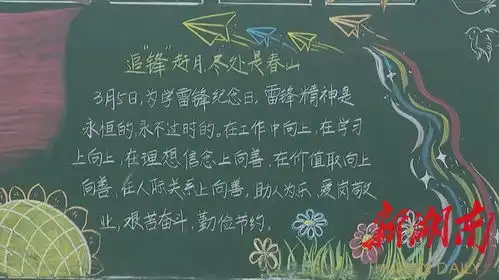 追“锋”赶月，尽处是春山
3月5日，为学雷锋纪念日。雷锋精神是
永恒的，永不过时的。在工作中向上，在学习
上向上，在理想信念上向善，在价值取向上
向善，在人际关系上向善，助人为乐，爱岗敬
业，艰苦奋斗，勤俭节约。
新湖南
HUNAN DAILY